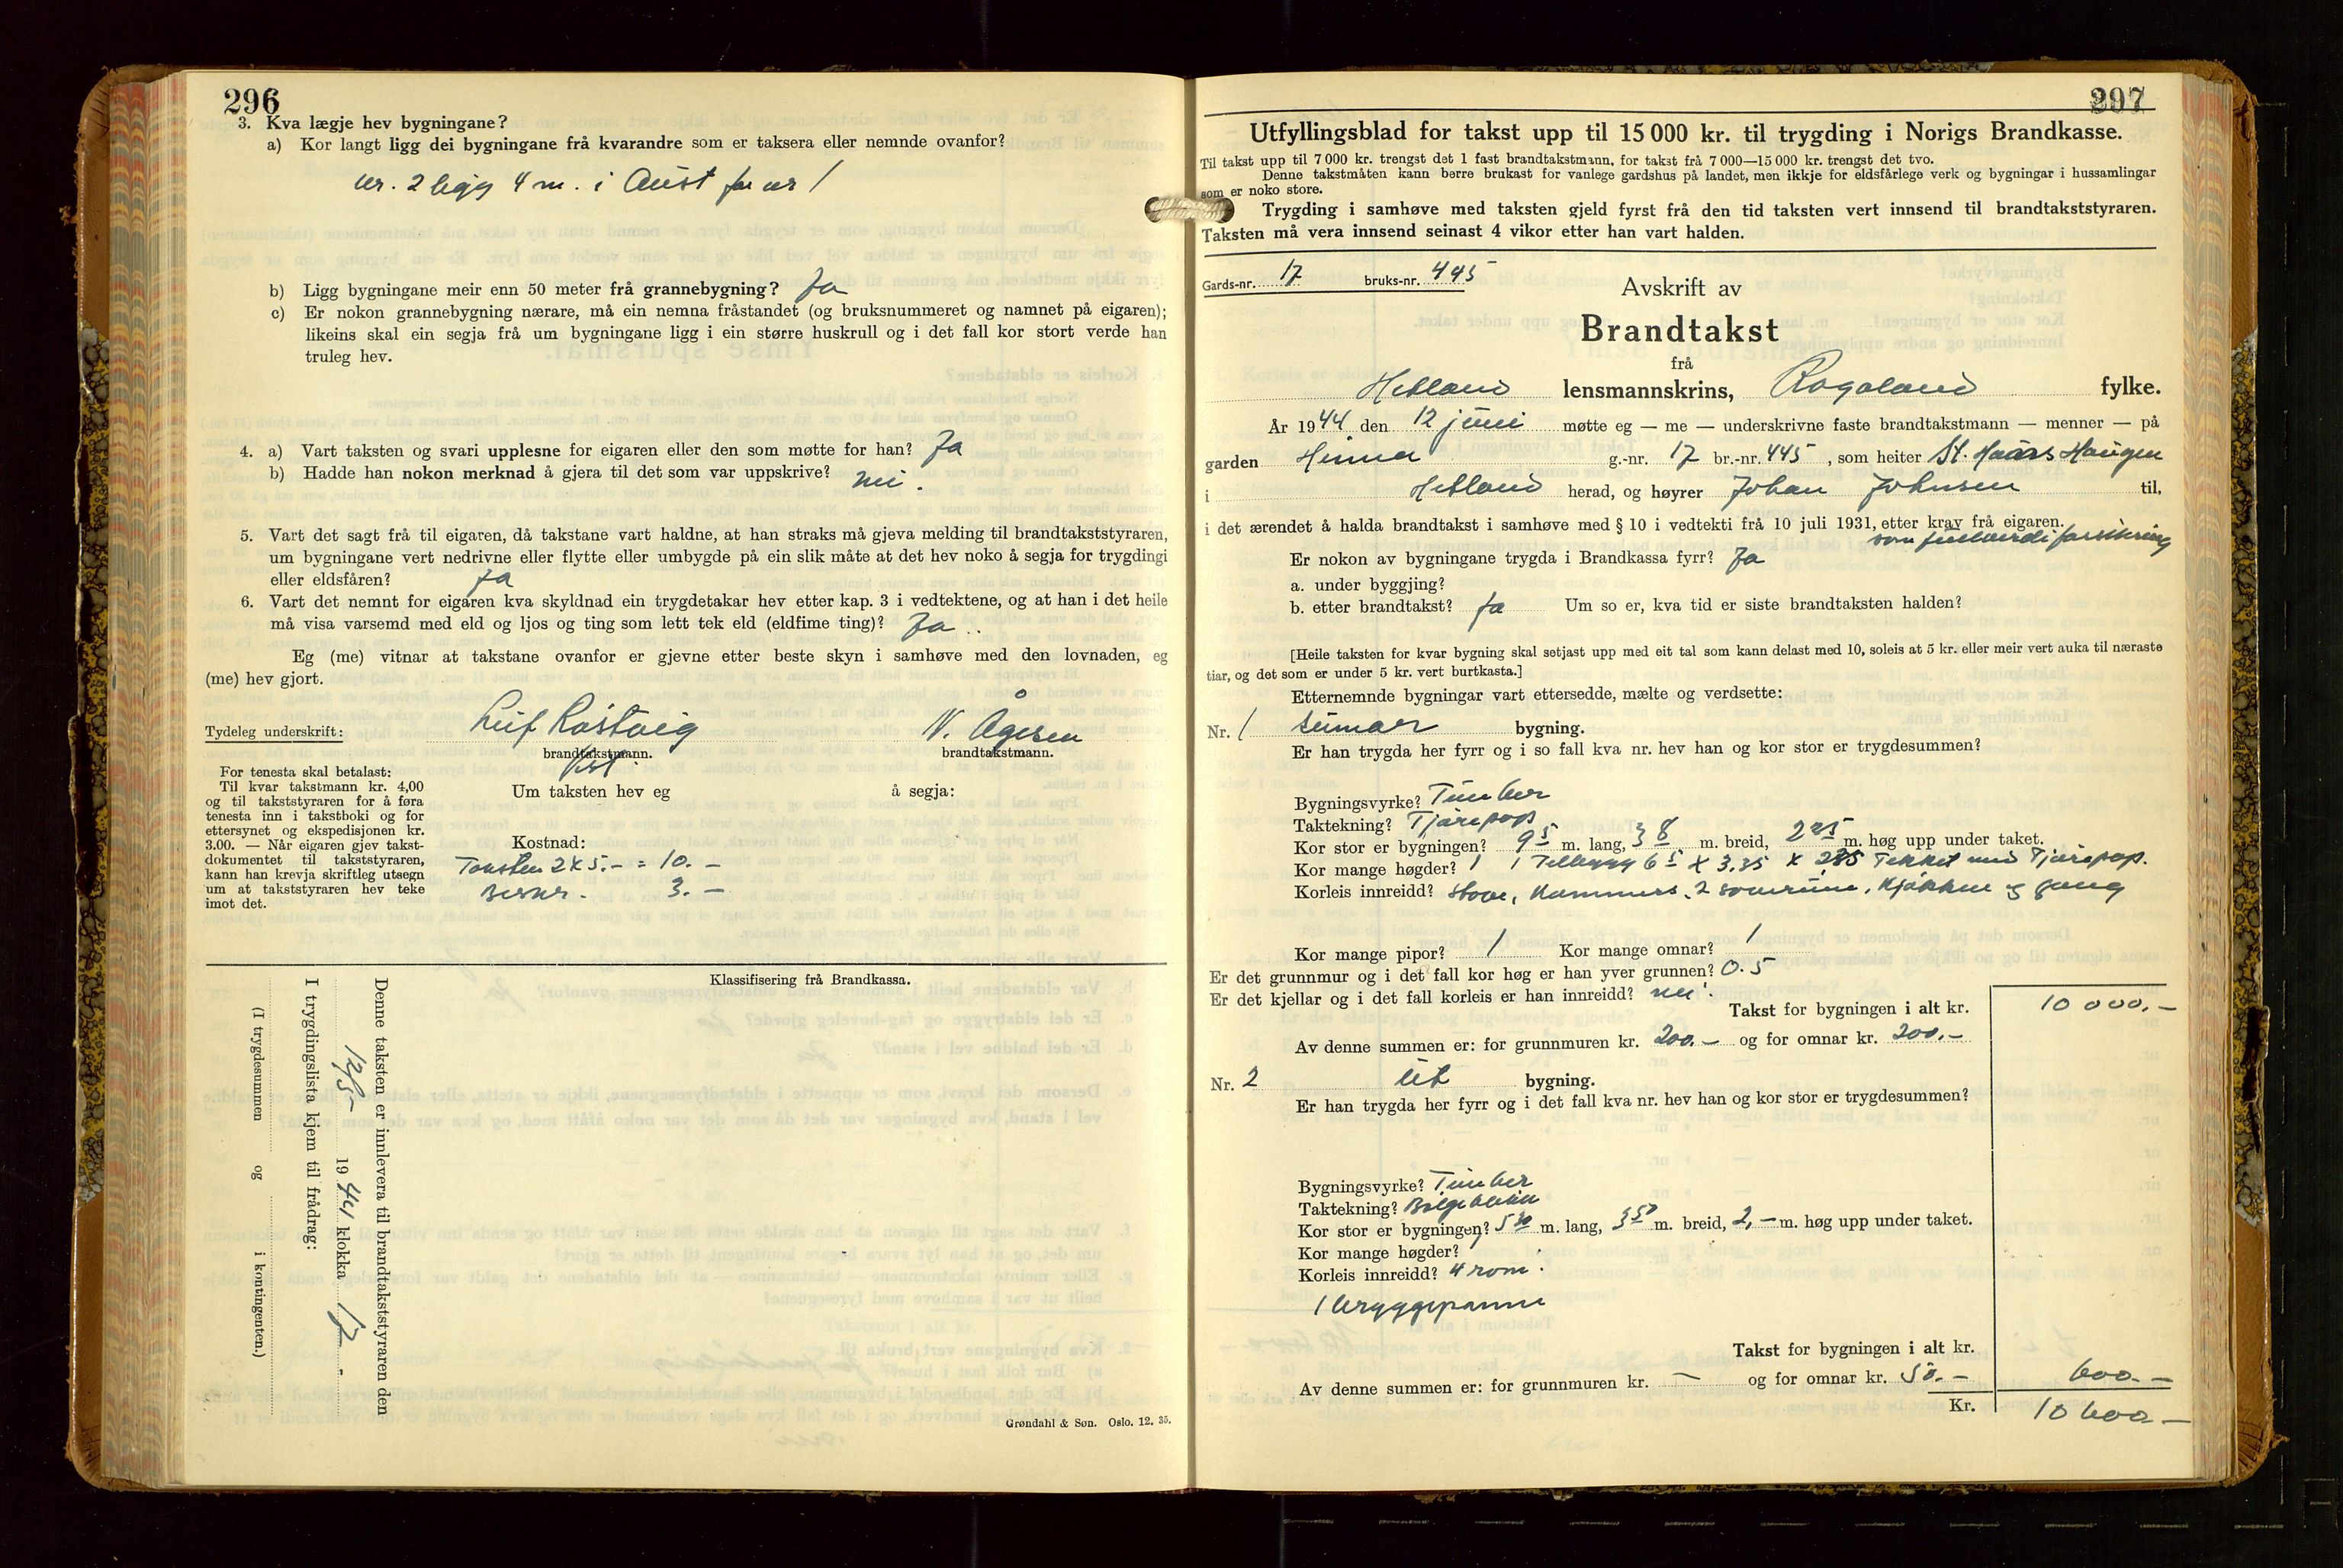 296
3. Kva lægje hev bygningane?
a) Kor langt ligg dei bygningane frå kvarandre som er taksera eller nemnde ovanfor?
nr. 2 ligg 4 m. i Aust for nr 1
b) Ligg bygningane meir enn 50 meter frå grannebygning? Ja
c) Er nokon grannebygning nærare, må ein nemna fråstandet (og bruksnummeret og namnet på eigaren);
likeins skal ein segja frå um bygningane ligg i ein større huskrull og i det fall kor stort verde han
truleg hev.
4. a) Vart taksten og svari upplesne for eigaren eller den som møtte for han? Ja
b) Hadde han nokon merknad å gjera til det som var uppskrive? nei.
5. Vart det sagt frå til eigaren, då takstane vart haldne, at han straks må gjeva melding til brandtakststyraren,
um bygningane vert nedrivne eller flytte eller umbygde på ein slik måte at det hev noko å segja for trygdingi
eller eldsfåren? Ja
6. Vart det nemnt for eigaren kva skyldnad ein trygdetakar hev etter kap. 3 i vedtektene, og at han i det heile
må visa varsemd med eld og ljos og ting som lett tek eld (eldfime ting)? Ja
Eg (me) vitnar at takstane ovanfor er gjevne etter beste skyn i samhøve med den lovnaden, eg
(me) hev gjort.
Tydeleg underskrift: Leif Rostveig N. Ågesen
brandtakstmann. brandtakstmann.
For tenesta skal betalast:
Til kvar takstmann kr. 4,00
og til takststyraren for å føra
tenesta inn i takstboki og for
ettersynet og ekspedisjonen kr.
3.00. — Når eigaren gjev takst-
dokumentet til takststyraren,
kann han krevja skriftleg utsegn
um at takststyraren hev teke
imot det.
Um taksten hev eg å segja:
Kostnad:
Taksten 2 x 5.- = 10.-
3.-
Klassifisering frå Brandkassa.
Denne taksten er innlevera til brandtakststyraren den
12/5- 1944 klokka 17
I trygdingslista kjem til frådrag:
(I trygdesummen og i kontingenten.)
Grøndahl & Søn. Oslo. 12. 35.
297
Utfyllingsblad for takst upp til 15 000 kr. til trygding i Norigs Brandkasse.
Til takst upp til 7 000 kr. trengst det 1 fast brandtakstmann, for takst frå 7 000—15 000 kr. trengst det tvo.
Denne takstmåten kann berre brukast for vanlege gardshus på landet, men ikkje for eldsfårlege verk og bygningar i hussamlingar
som er noko store.
Trygding i samhøve med taksten gjeld fyrst frå den tid taksten vert innsend til brandtakststyraren.
Taksten må vera innsend seinast 4 vikor etter han vart halden.
Gards-nr. 17 bruks-nr. 445
Avskrift av
Brandtakst
frå
Hetland lensmannskrins, Rogaland fylke.
År 1944 den 12 juni møtte eg — me — underskrivne faste brandtakstmann — menner — på
garden Hinna g.-nr. 17 br.-nr. 445, som heiter St. Haars Haugen
i Hetland herad, og høyrer Johan Johnsen til,
i det ærendet å halda brandtakst i samhøve med § 10 i vedtekti frå 10 juli 1931, etter krav frå eigaren.
som fullverdiforsikring
Er nokon av bygningane trygda i Brandkassa fyrr? Ja
a. under byggjing?
b. etter brandtakst? Ja Um so er, kva tid er siste brandtaksten halden?
[Heile taksten for kvar bygning skal setjast upp med eit tal som kann delast med 10, soleis at 5 kr. eller meir vert auka til næraste
tiar, og det som er under 5 kr. vert burtkasta.]
Etternemnde bygningar vart ettersedde, mælte og verdsette:
Nr. 1 sumar bygning.
Er han trygda her fyrr og i so fall kva nr. hev han og kor stor er trygdesummen?
Bygningsvyrke? Timber
Taktekning? Tjørepap
Kor stor er bygningen? 9 5 m. lang, 3 8 m. breid, 2 25 m. høg upp under taket.
Kor mange høgder? 1 1 Tilbygg 6 5 x 3.35 x 2 25 Tekket med Tjørepap.
Korleis innreidd? stove, Kammers, 2 soverum, Kjøkken og gang
Kor mange pipor? 1 Kor mange omnar? 1
Er det grunnmur og i det fall kor høg er han yver grunnen? 0.5
Er det kjellar og i det fall korleis er han innreidd? nei.
Takst for bygningen i alt kr. 10 000.-
Av denne summen er: for grunnmuren kr. 200.- og for omnar kr. 200.-
Nr. 2 ut bygning.
Er han trygda her fyrr og i det fall kva nr. hev han og kor stor er trygdesummen?
Bygningsvyrke? Timber
Taktekning? Bølgeblikk
Kor stor er bygningen? 5 30 m. lang, 3 50 m. breid, 2,- m. høg upp under taket.
Kor mange høgder? 1
Korleis innreidd? 4 rom.
1 bryggepanne
Takst for bygningen i alt kr. 600.-
Av denne summen er: for grunnmuren kr. — og for omnar kr. 50.-
Kr. 10 600.-